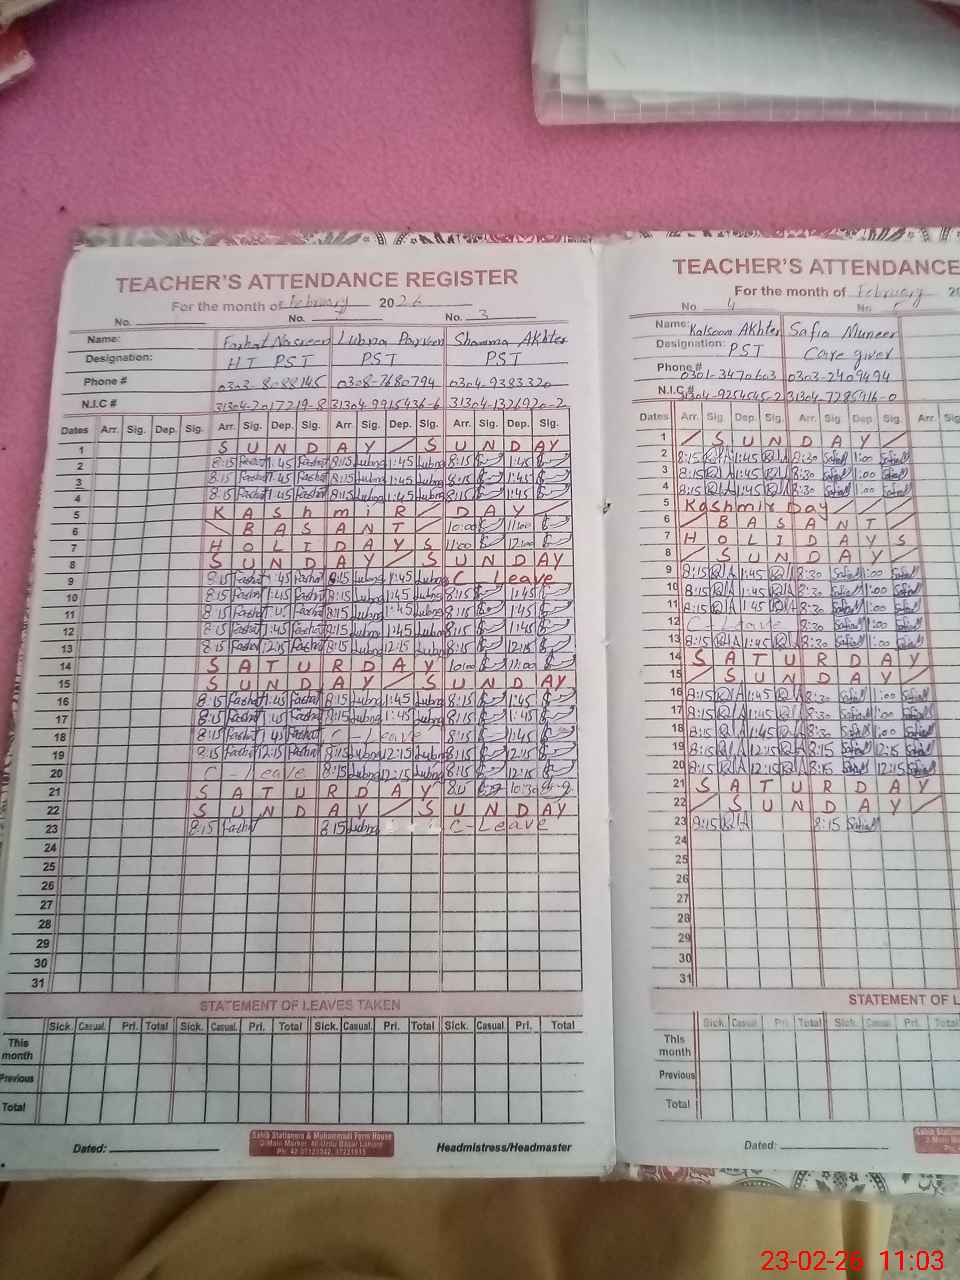 TEACHER'S ATTENDANCE REGISTER
For the month of February 2026
No. No. No. 3
Name: Farhat Nasreen Lubna Parveen Shamma Akhter
Designation: HT PST PST PST
Phone # 0303-8088145 0308-7680794 0304-9383320
N.I.C # 31304-2017219-8 31304-9915436-6 31304-1326920-2
Dates Arr. Sig. Dep. Sig. Arr. Sig. Dep. Sig. Arr. Sig. Dep. Sig. Arr. Sig. Dep. Sig.
1 SUNDAY SUNDAY
2 8:15 Farhat 1:45 Farhat 8:15 Lubna 1:45 Lubna 8:15 1:45
3 8:15 Farhat 1:45 Farhat 8:15 Lubna 1:45 Lubna 8:15 1:45
4 8:15 Farhat 1:45 Farhat 8:15 Lubna 1:45 Lubna 8:15 1:45
5 KAShmiR DAY
6 BASANT 10:00 11:00
7 HOLIDAYS 11:00 12:00
8 SUNDAY SUNDAY
9 8:15 Farhat 1:45 Farhat 8:15 Lubna 1:45 Lubna C Leave
10 8:15 Farhat 1:45 Farhat 8:15 Lubna 1:45 Lubna 8:15 1:45
11 8:15 Farhat 1:45 Farhat 8:15 Lubna 1:45 Lubna 8:15 1:45
12 8:15 Farhat 1:45 Farhat 8:15 Lubna 1:45 Lubna 8:15 1:45
13 8:15 Farhat 12:15 Farhat 8:15 Lubna 12:15 Lubna 8:15 12:15
14 SATURDAY 10:00 11:00
15 SUNDAY SUNDAY
16 8:15 Farhat 1:45 Farhat 8:15 Lubna 1:45 Lubna 8:15 1:45
17 8:15 Farhat 1:45 Farhat 8:15 Lubna 1:45 Lubna 8:15 1:45
18 8:15 Farhat 1:45 Farhat C-Leave 8:15 1:45
19 8:15 Farhat 12:15 Farhat 8:15 Lubna 12:15 Lubna 8:15 12:15
20 C-Leave 8:15 Lubna 12:15 Lubna 8:15 12:15
21 SATURDAY 10:30
22 SUNDAY SUNDAY
23 8:15 Farhat 8:15 Lubna C-Leave
24
25
26
27
28
29
30
31
STATEMENT OF LEAVES TAKEN
Sick. Casual. Pri. Total Sick. Casual. Pri. Total Sick. Casual. Pri. Total Sick. Casual. Pri. Total
This month
Previous
Total
Sahib Stationers & Muhammadi Form House
Ph: 42-37123342, 37231915
Dated: Headmistress/Headmaster
TEACHER'S ATTENDANCE
For the month of February 20
No 4 No
Name: Kalsoom Akhter Safia Muneer
Designation: PST Care giver
Phone # 0301-3470603 0303-2409494
N.I.C # 31304-9254545-2 31304-7285916-0
Dates Arr. Sig. Dep. Sig. Arr. Sig. Dep. Sig. Arr. Sig
1 SUNDAY
2 8:15 1:45 8:30 Safia 1:00 Safia
3 8:15 1:45 8:30 Safia 1:00 Safia
4 8:15 1:45 8:30 Safia 1:00 Safia
5 Kashmir Day
6 BASANT
7 HOLIDAYS
8 SUNDAY
9 8:15 1:45 8:30 Safia 1:00 Safia
10 8:15 1:45 8:30 Safia 1:00 Safia
11 8:15 1:45 8:30 Safia 1:00 Safia
12 C-Leave 8:30 Safia 1:00 Safia
13 8:15 1:45 8:30 Safia 1:00 Safia
14 SATURDAY
15 SUNDAY
16 8:15 1:45 8:30 Safia 1:00 Safia
17 8:15 1:45 8:30 Safia 1:00 Safia
18 8:15 1:45 8:30 Safia 1:00 Safia
19 8:15 12:15 8:15 Safia 12:15 Safia
20 8:15 12:15 8:15 Safia 12:15 Safia
21 SATURDAY
22 SUNDAY
23 8:15 8:15 Safia
24
25
26
27
28
29
30
31
STATEMENT OF L
Sick. Casual Pri. Total Sick. Casual. Pri. Total
This month
Previous
Total
Dated:
23-02-26 11:03